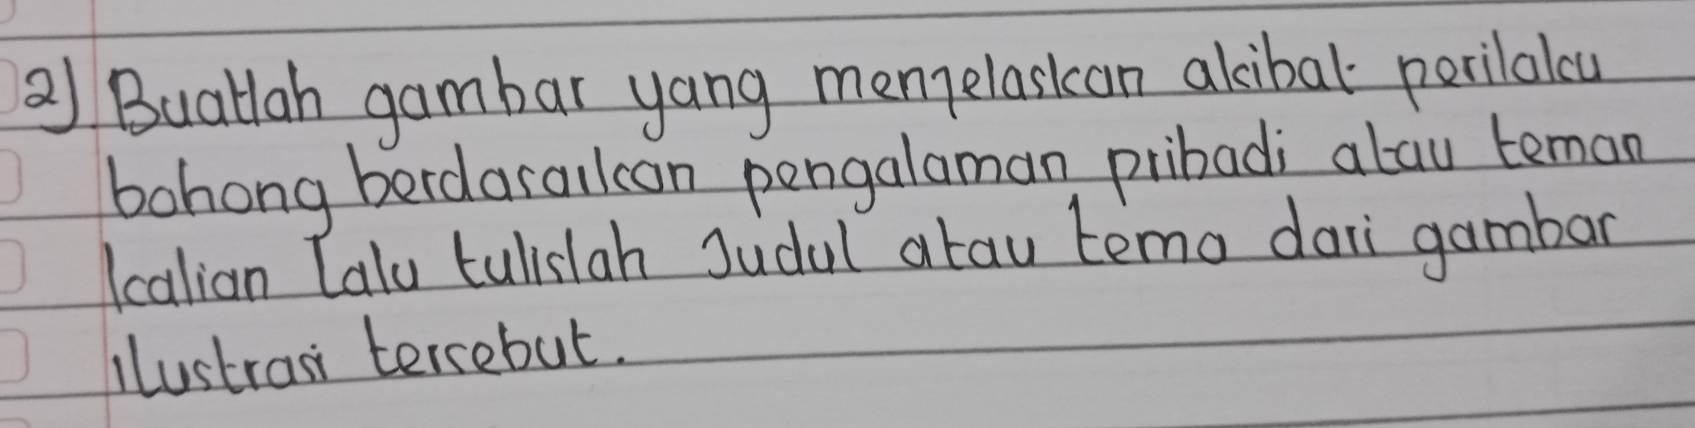 2) Buatlah gambar yang menjelaskan akibat perilaku
bohong berdasarkan pengalaman pribadi atau teman
kalian lalu tulislah Judul atau tema dari gambar
ilustrasi tersebut.